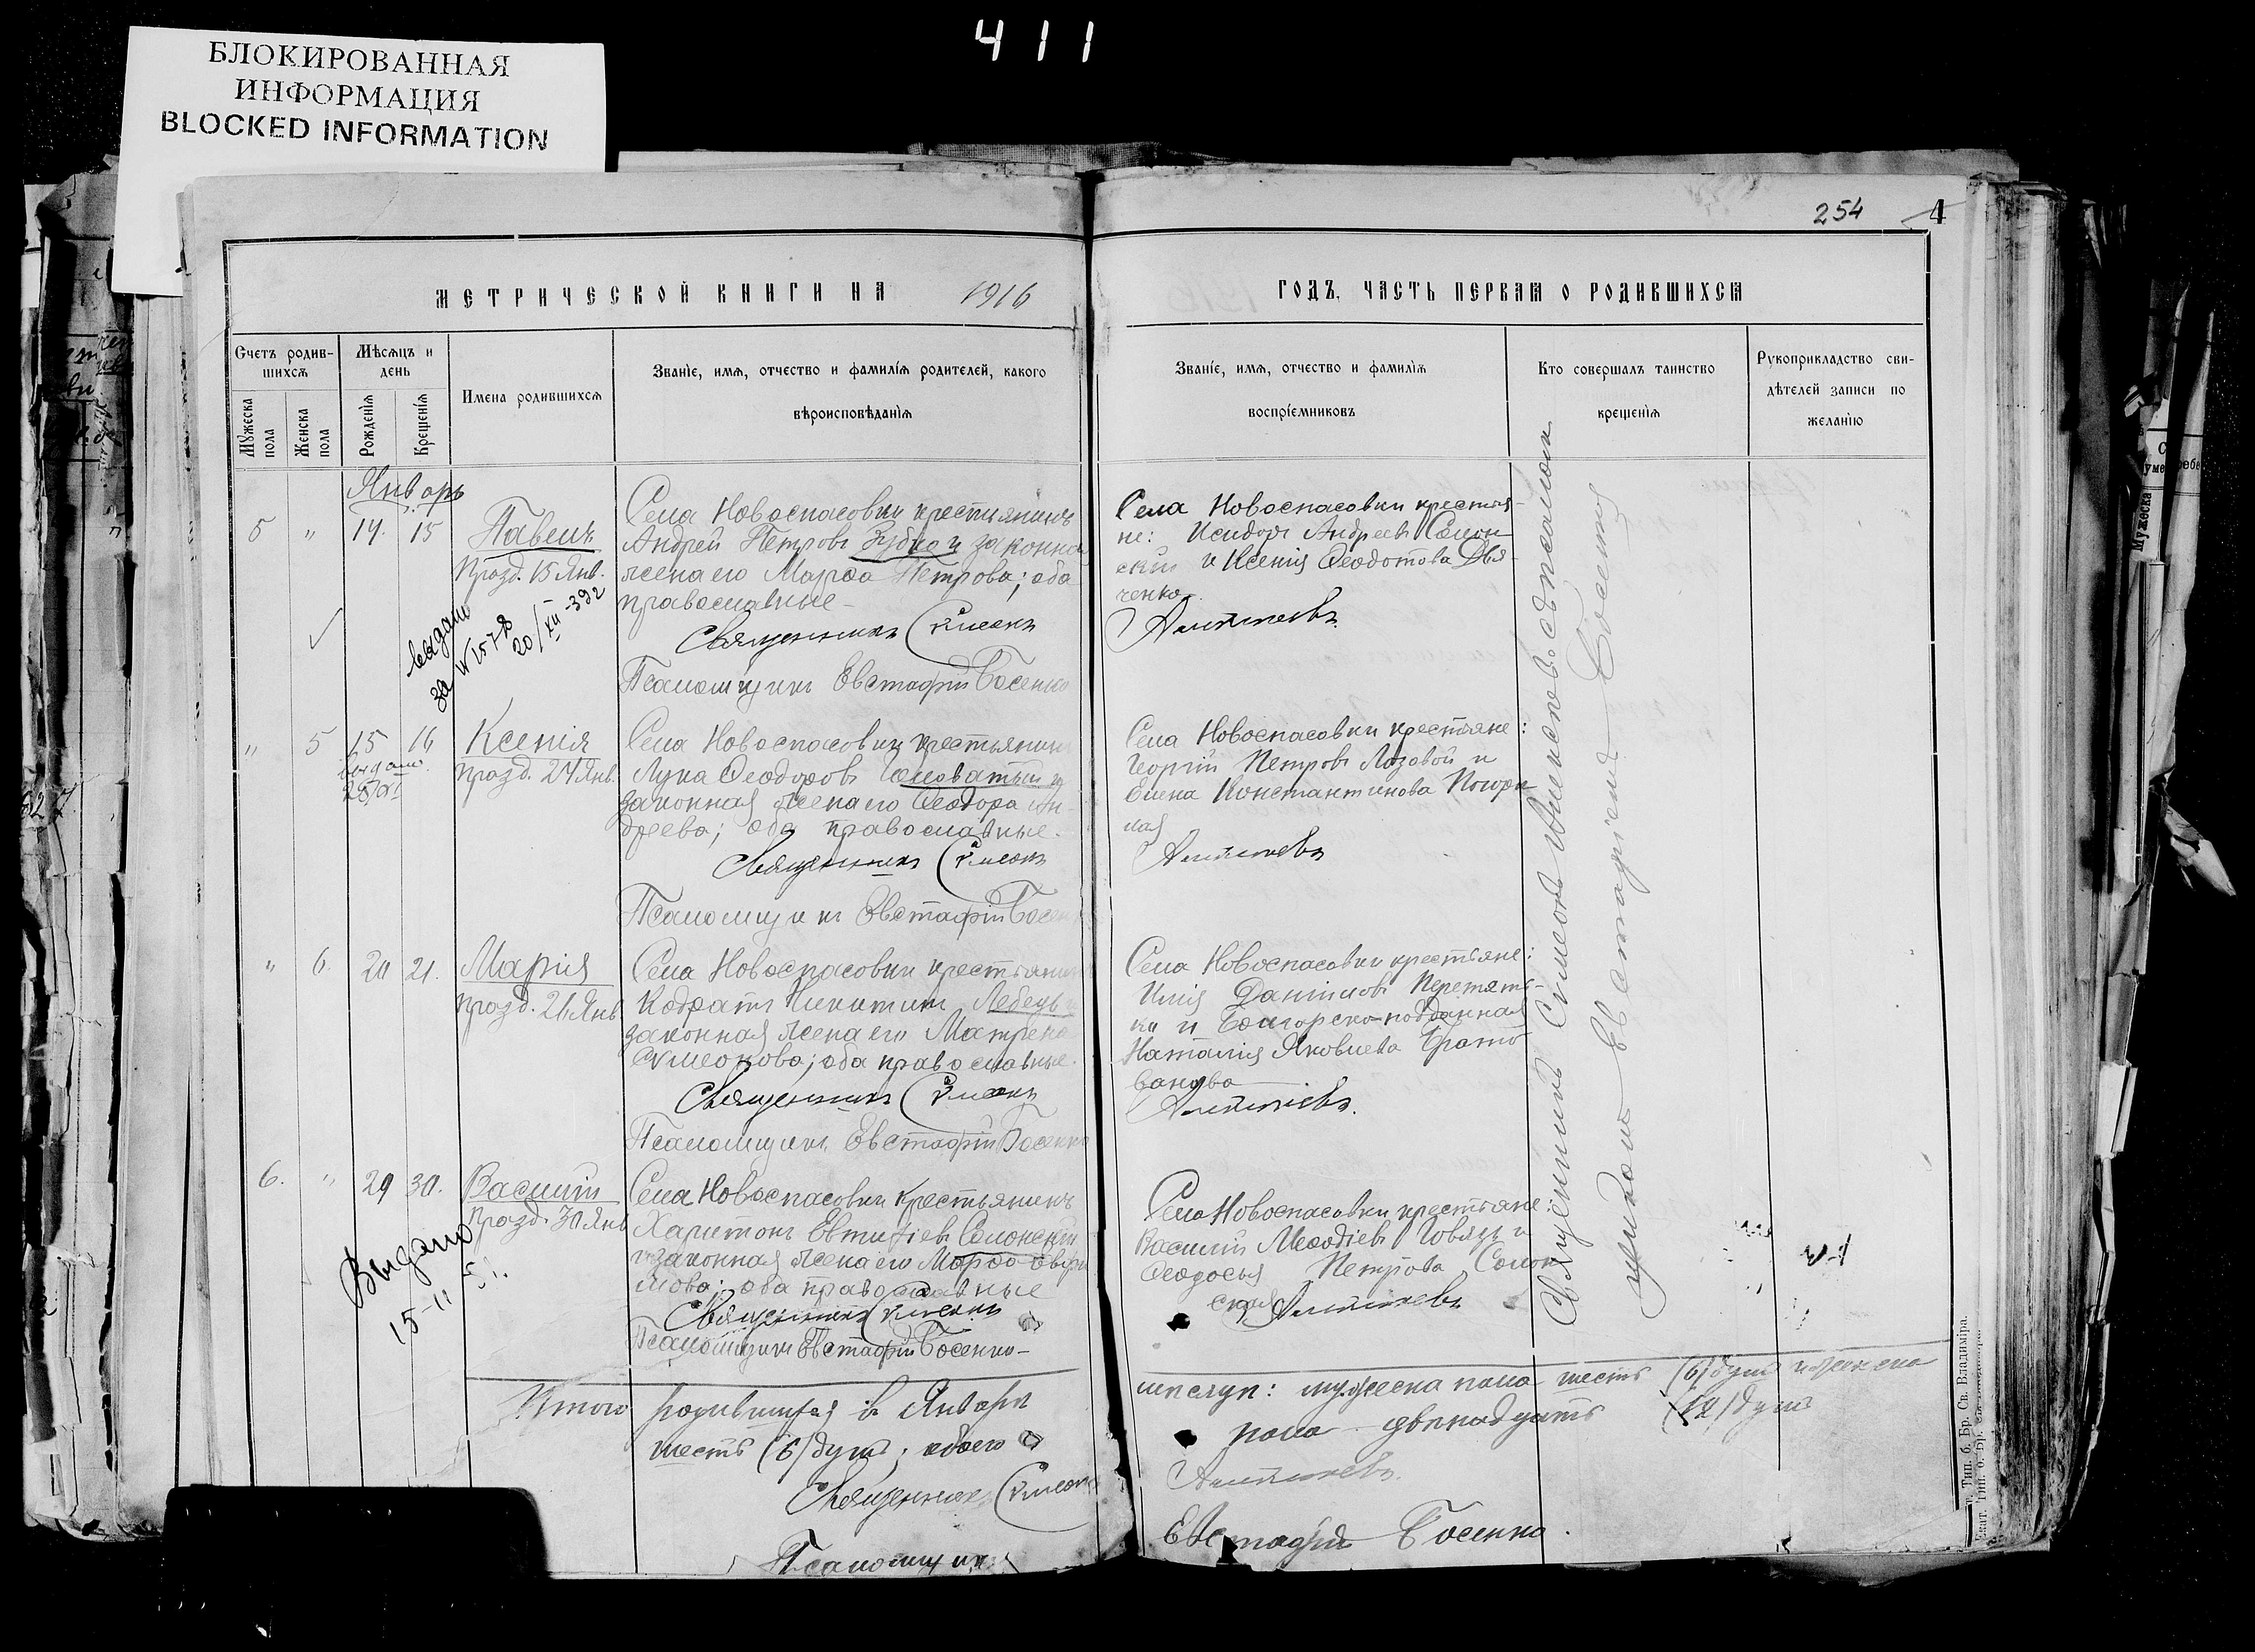 411
БЛОКИРОВАННАЯ
ИНФОРМАЦИЯ
BLOCKED INFORMATION
254 4
МЕТРИЧЕСКОЙ КНИГИ НА 1916
ГОДЪ, ЧАСТЬ ПЕРВАЯ О РОДИВШИХСЯ
Счетъ родив-
шихся
Мужеска
пола
Женска
пола
Мѣсяцъ и
день
Рожденія
Крещенія
Имена родившихся
Званіе, имя, отчество и фамилія родителей, какого
вѣроисповѣданія
Званіе, имя, отчество и фамилія
воспріемниковъ
Кто совершалъ таинство
крещенія
Рукоприкладство сви-
дѣтелей записи по
желанію
Январь
5 " 14. 15
Павелъ
Празд. 15 Янв.
выдано
за № 1578
20/XII-39г
Села Новоспасовки крестьянинъ
Андрей Петровъ Зубко и законная
жена его Марѳа Петрова; оба
православные
Священникъ Сѵмеонъ
Псаломщикъ Евстафій Босенко
Села Новоспасовки крестья-
не: Исидоръ Андреевъ Солон
скій и Ксенія Ѳеодотова Дья-
ченко.
" 5 15 16
Ксенія
празд. 24 Янв.
выдано
Села Новоспасовки крестьянинъ
Лука Ѳеодоровъ
законная жена его Ѳеодора Ан-
дреева; оба православные.
Священникъ Сѵмеонъ
Псаломщикъ Евстафій Босенко
Села Новоспасовки крестьяне:
Георгій Петровъ Лозовой и
Елена Константинова
лая
" 6. 20 21.
Марія
празд. 26 Янв.
Села Новоспасовки крестьянинъ
Кодратъ Никитинъ Лебедь и
законная жена его Матрона
Сѵмеонова; оба православные.
Священникъ Сѵмеонъ
Псаломщикъ Евстафій Босенко
Села Новоспасовки крестьяне:
Илія Даніиловъ Перетять-
ко и Болгарско-подданная
Наталія Яковлева Брато
ванова
6. " 29 30.
Василій
празд. 30 Янв
Выдано
15-11 51.
Села Новоспасовки крестьянинъ
Харитонъ Евтихіевъ Солонскій
и законная жена его Марѳа Евфи
мова; оба православные
Священникъ Сѵмеонъ
Псаломщикъ Евстафій Босенко
Села Новоспасовки крестьяне
Василій Меѳодіевъ Говязъ и
Ѳеодосья Петрова Солон
ская
Священникъ Сѵмеонъ съ псалом
щикомъ Евстафіемъ Босенко
Итого родившихся въ Январѣ
мѣсяцѣ: мужеска пола шесть (6) душъ и женска
шесть (6) душъ; обоего
пола двѣнадцать (12) душъ
Священникъ Сѵмеонъ
Псаломщикъ
Евстафій Босенко.
Тип. б. Бр. Св. Владиміра.